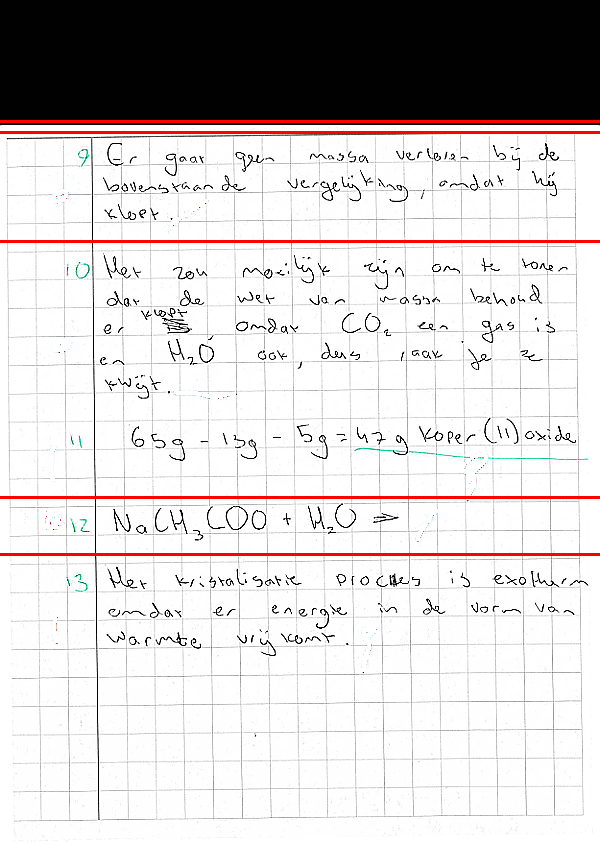 9 Er gaat geen massa verloren bij de
bovenstaande vergelijking, omdat hij
klopt.
10 Het zou moeilijk zijn om te tonen
dat de wet van massa behoud
er klopt omdat CO₂ een gas is
en H₂O ook, dus raak je ze
kwijt.
11 65g - 13g - 5g = 47 g koper (II) oxide
12 NaCH₃COO + H₂O ⇒
13 Het kristalisatie proces is exotherm
omdat er energie in de vorm van
warmte vrij komt.